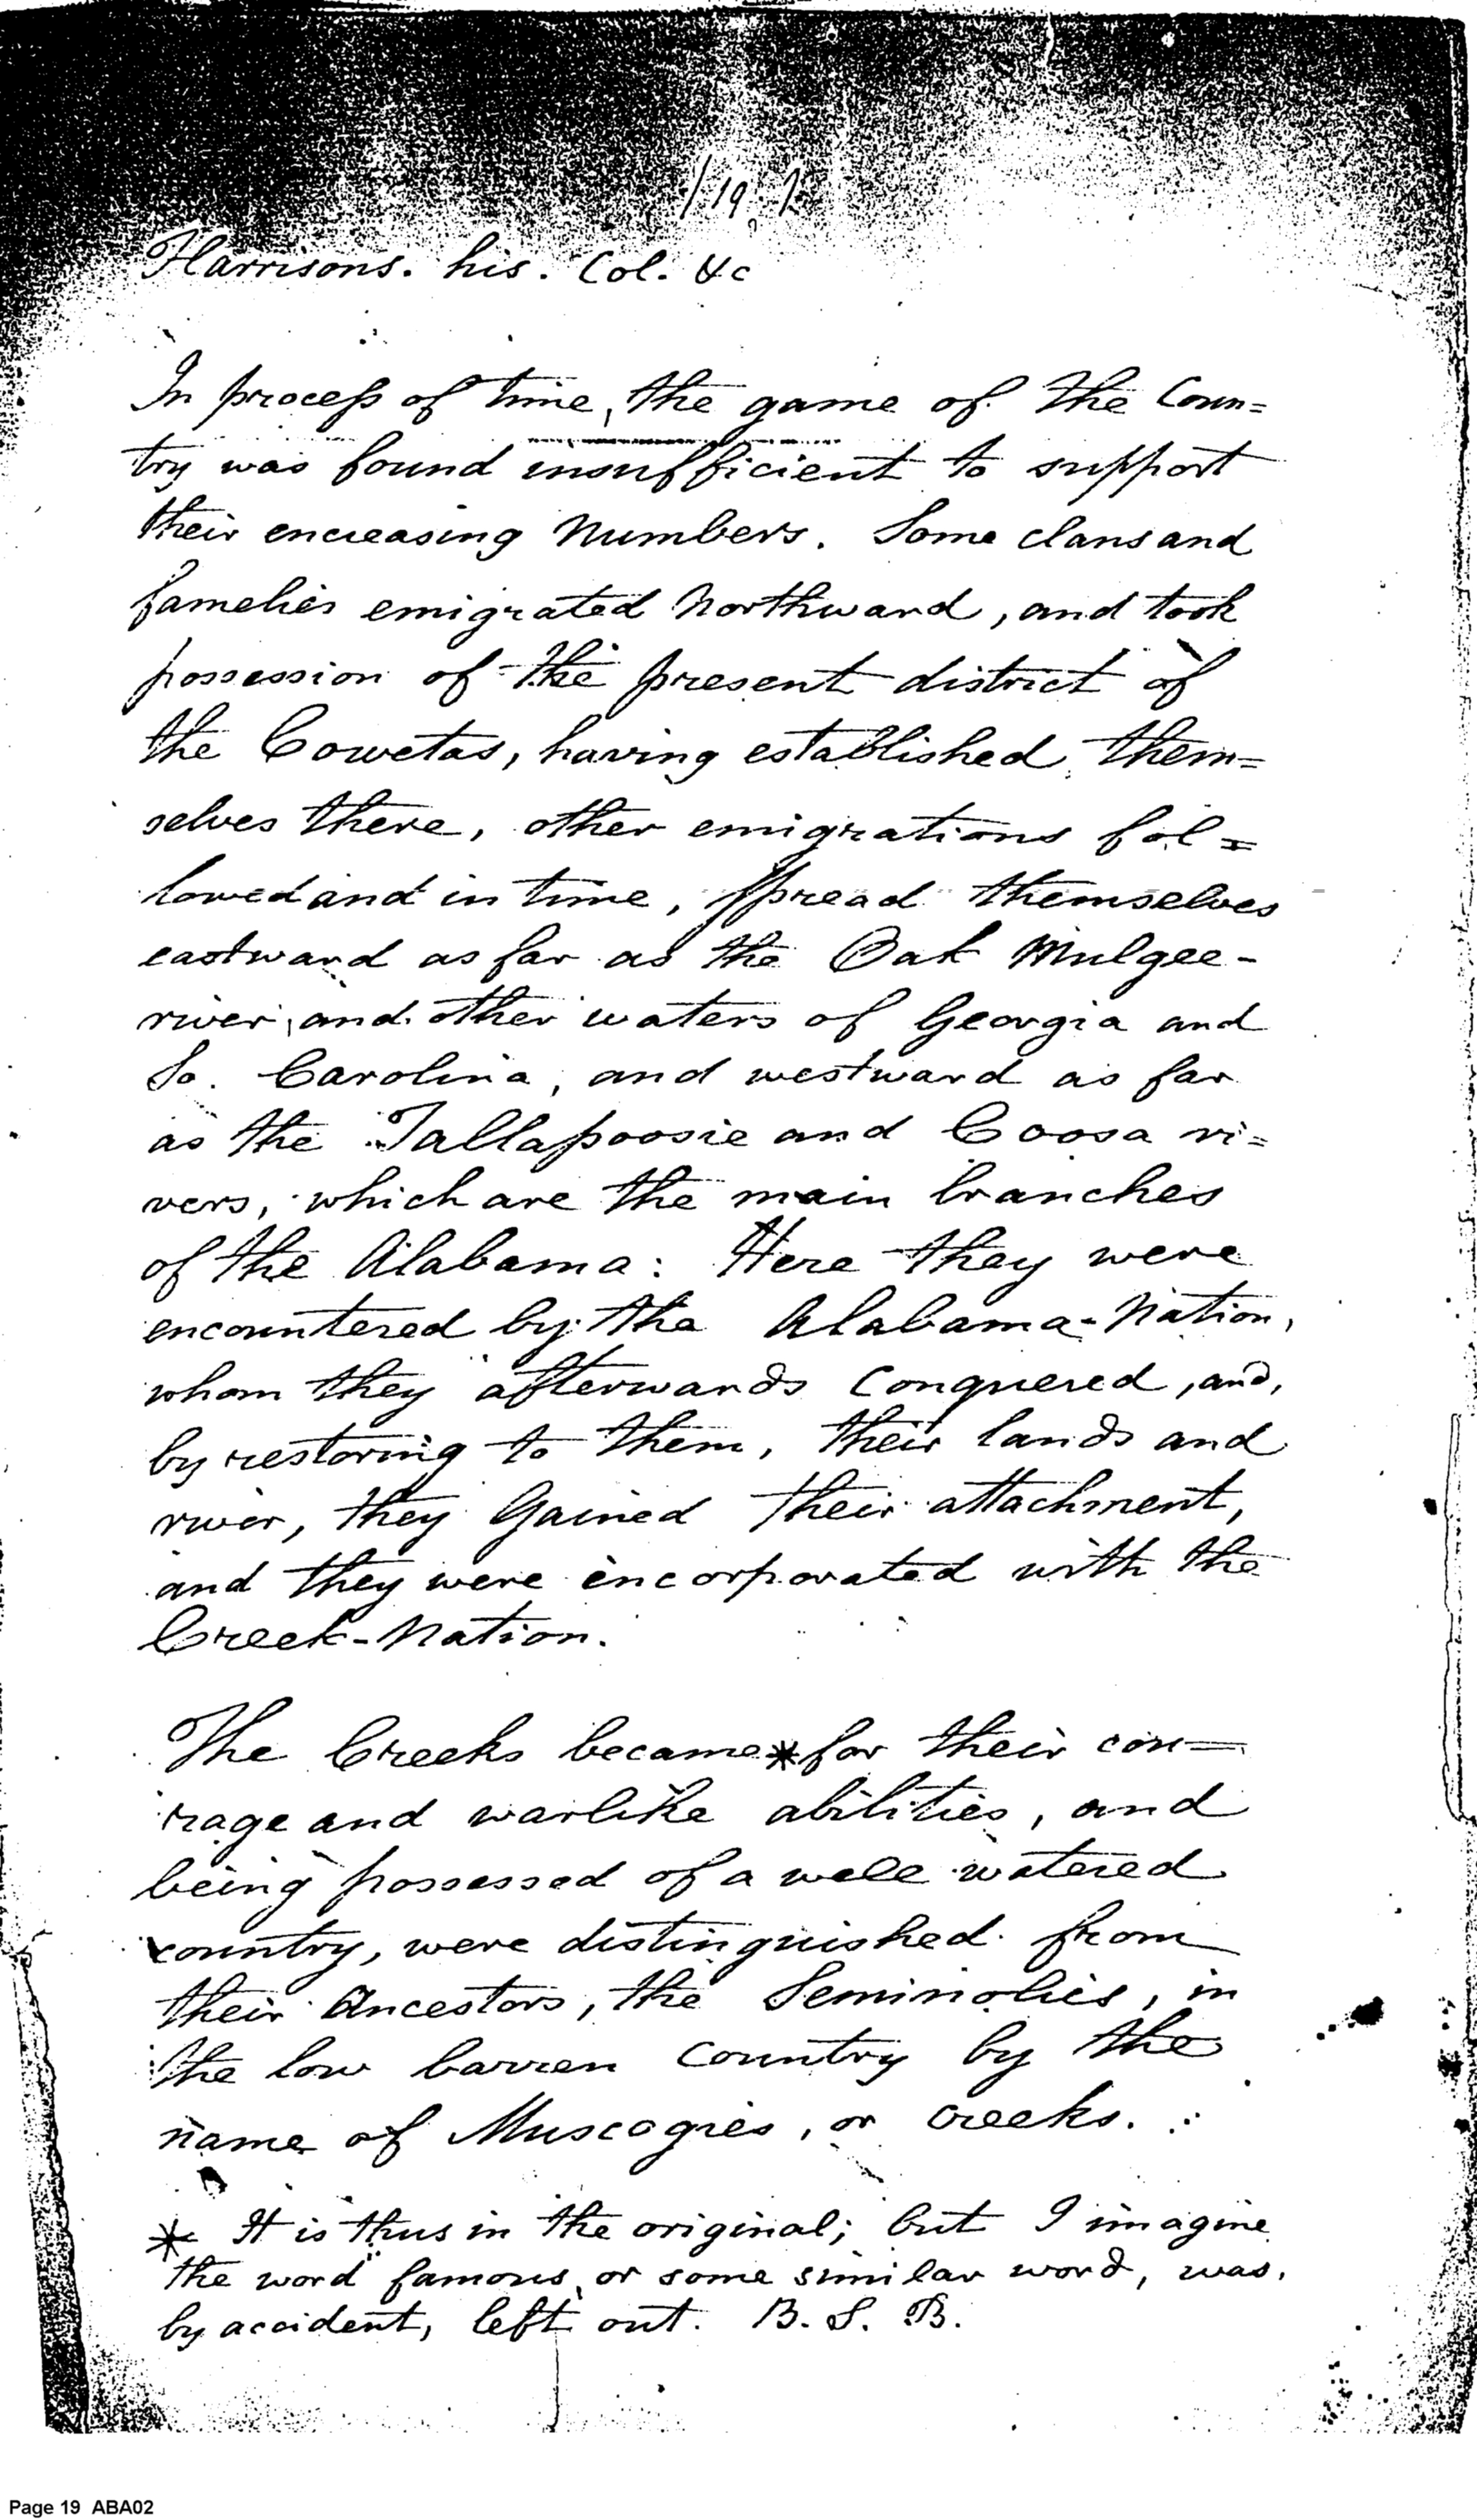 /19./
Harrisons. his. Col. &c
In process of time, the game of the Coun=
try was found insufficient to support
their encreasing Numbers. Some clans and
famelies emigrated Northward, and took
possession of the present district of
the Cowetas, having established them=
selves there, other emigrations fol=
lowed and in time, spread themselves
eastward as far as the Oak Mulgee-
river, and other waters of Georgia and
So. Carolina, and westward as far
as the Tallapoosie and Coosa ri=
vers, which are the main branches
of the Alabama: Here they were
encountered by the Alabama-Nation,
whom they afterwards Conquered, and,
by restoring to them, their lands and
river, they Gained their attachment,
and they were encorporated with the
Creek-Nation.
The Creeks became * for their cou=
rage and warlike abilities, and
being possessed of a well watered
country, were distinguished from
their Ancestors, the Seminolies, in
the low barren Country by the
name of Muscogies, or Creeks.
* It is thus in the original; but I imagine
the word "famous, or some similar word, was,
by accident, left out. B. S. B.
Page 19 ABA02